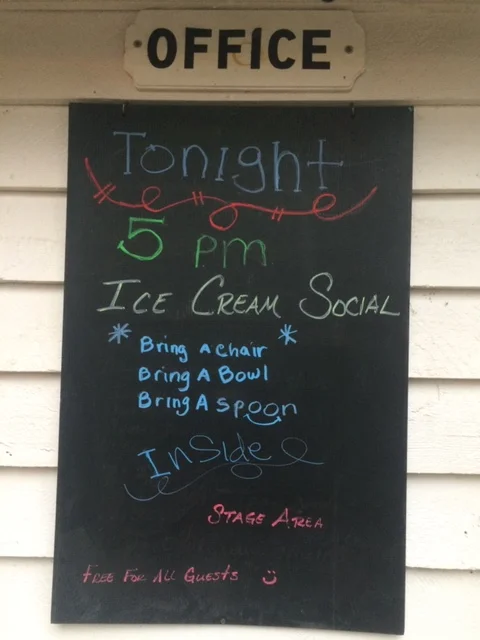 OFFICE
Tonight
5 pm
ICE CREAM SOCIAL
* Bring A chair *
Bring A Bowl
Bring A spoon
InSide
STAGE AREA
FREE FOR ALL GUESTS